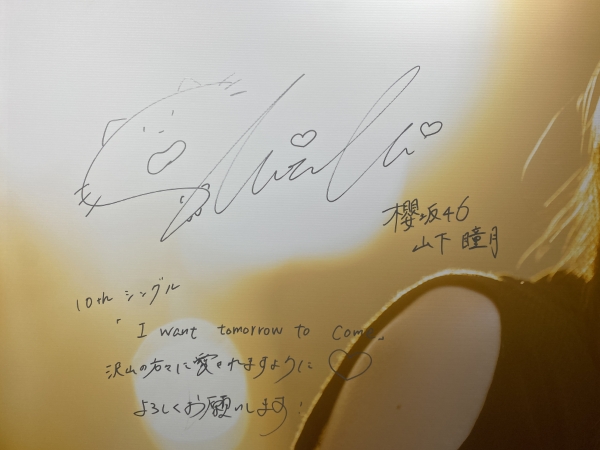 櫻坂46
山下 瞳月
10th シングル
「I want tomorrow to come」
沢山の方々に愛されますように♡
よろしくお願いします!